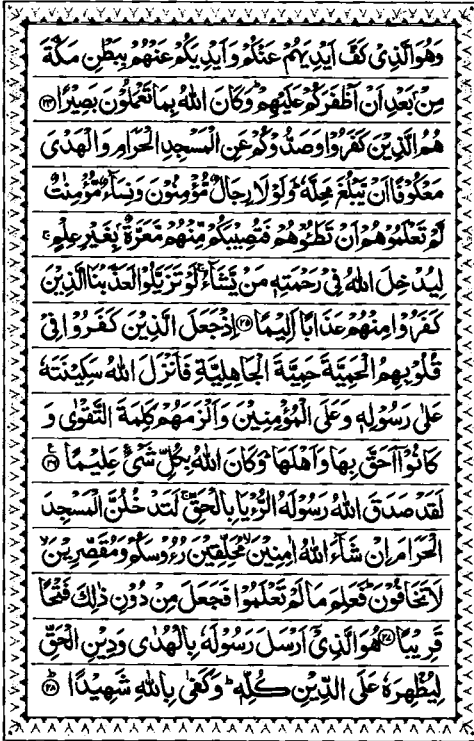 وَهُوَ الَّذِىْ كَفَّ اَيْدِيَهُمْ عَنْكُمْ وَاَيْدِيَكُمْ عَنْهُمْ بِبَطْنِ مَكَّةَ
مِنْۢ بَعْدِ اَنْ اَظْفَرَكُمْ عَلَيْهِمْ ؕ وَكَانَ اللّٰهُ بِمَا تَعْمَلُوْنَ بَصِيْرًا ﴿۲۴﴾
هُمُ الَّذِيْنَ كَفَرُوْا وَصَدُّوْكُمْ عَنِ الْمَسْجِدِ الْحَرَامِ وَالْهَدْىَ
مَعْكُوْفًا اَنْ يَّبْلُغَ مَحِلَّهٗ ؕ وَلَوْلَا رِجَالٌ مُّؤْمِنُوْنَ وَنِسَآءٌ مُّؤْمِنٰتٌ
لَّمْ تَعْلَمُوْهُمْ اَنْ تَطَـُٔوْهُمْ فَتُصِيْبَكُمْ مِّنْهُمْ مَّعَرَّةٌۢ بِغَيْرِ عِلْمٍ ۚ
لِيُدْخِلَ اللّٰهُ فِىْ رَحْمَتِهٖ مَنْ يَّشَآءُ ۚ لَوْ تَزَيَّلُوْا لَعَذَّبْنَا الَّذِيْنَ
كَفَرُوْا مِنْهُمْ عَذَابًا اَلِيْمًا ﴿۲۵﴾ اِذْ جَعَلَ الَّذِيْنَ كَفَرُوْا فِىْ
قُلُوْبِهِمُ الْحَمِيَّةَ حَمِيَّةَ الْجَاهِلِيَّةِ فَاَنْزَلَ اللّٰهُ سَكِيْنَتَهٗ
عَلٰى رَسُوْلِهٖ وَعَلَى الْمُؤْمِنِيْنَ وَاَلْزَمَهُمْ كَلِمَةَ التَّقْوٰى وَ
كَانُوْۤا اَحَقَّ بِهَا وَاَهْلَهَا ؕ وَكَانَ اللّٰهُ بِكُلِّ شَىْءٍ عَلِيْمًا ﴿۲۶﴾
لَقَدْ صَدَقَ اللّٰهُ رَسُوْلَهُ الرُّءْيَا بِالْحَقِّ ۚ لَتَدْخُلُنَّ الْمَسْجِدَ
الْحَرَامَ اِنْ شَآءَ اللّٰهُ اٰمِنِيْنَ ۙ مُحَلِّقِيْنَ رُءُوْسَكُمْ وَمُقَصِّرِيْنَ ۙ
لَا تَخَافُوْنَ ؕ فَعَلِمَ مَا لَمْ تَعْلَمُوْا فَجَعَلَ مِنْ دُوْنِ ذٰلِكَ فَتْحًا
قَرِيْبًا ﴿۲۷﴾ هُوَ الَّذِىْۤ اَرْسَلَ رَسُوْلَهٗ بِالْهُدٰى وَدِيْنِ الْحَقِّ
لِيُظْهِرَهٗ عَلَى الدِّيْنِ كُلِّهٖ ؕ وَكَفٰى بِاللّٰهِ شَهِيْدًا ﴿۲۸﴾